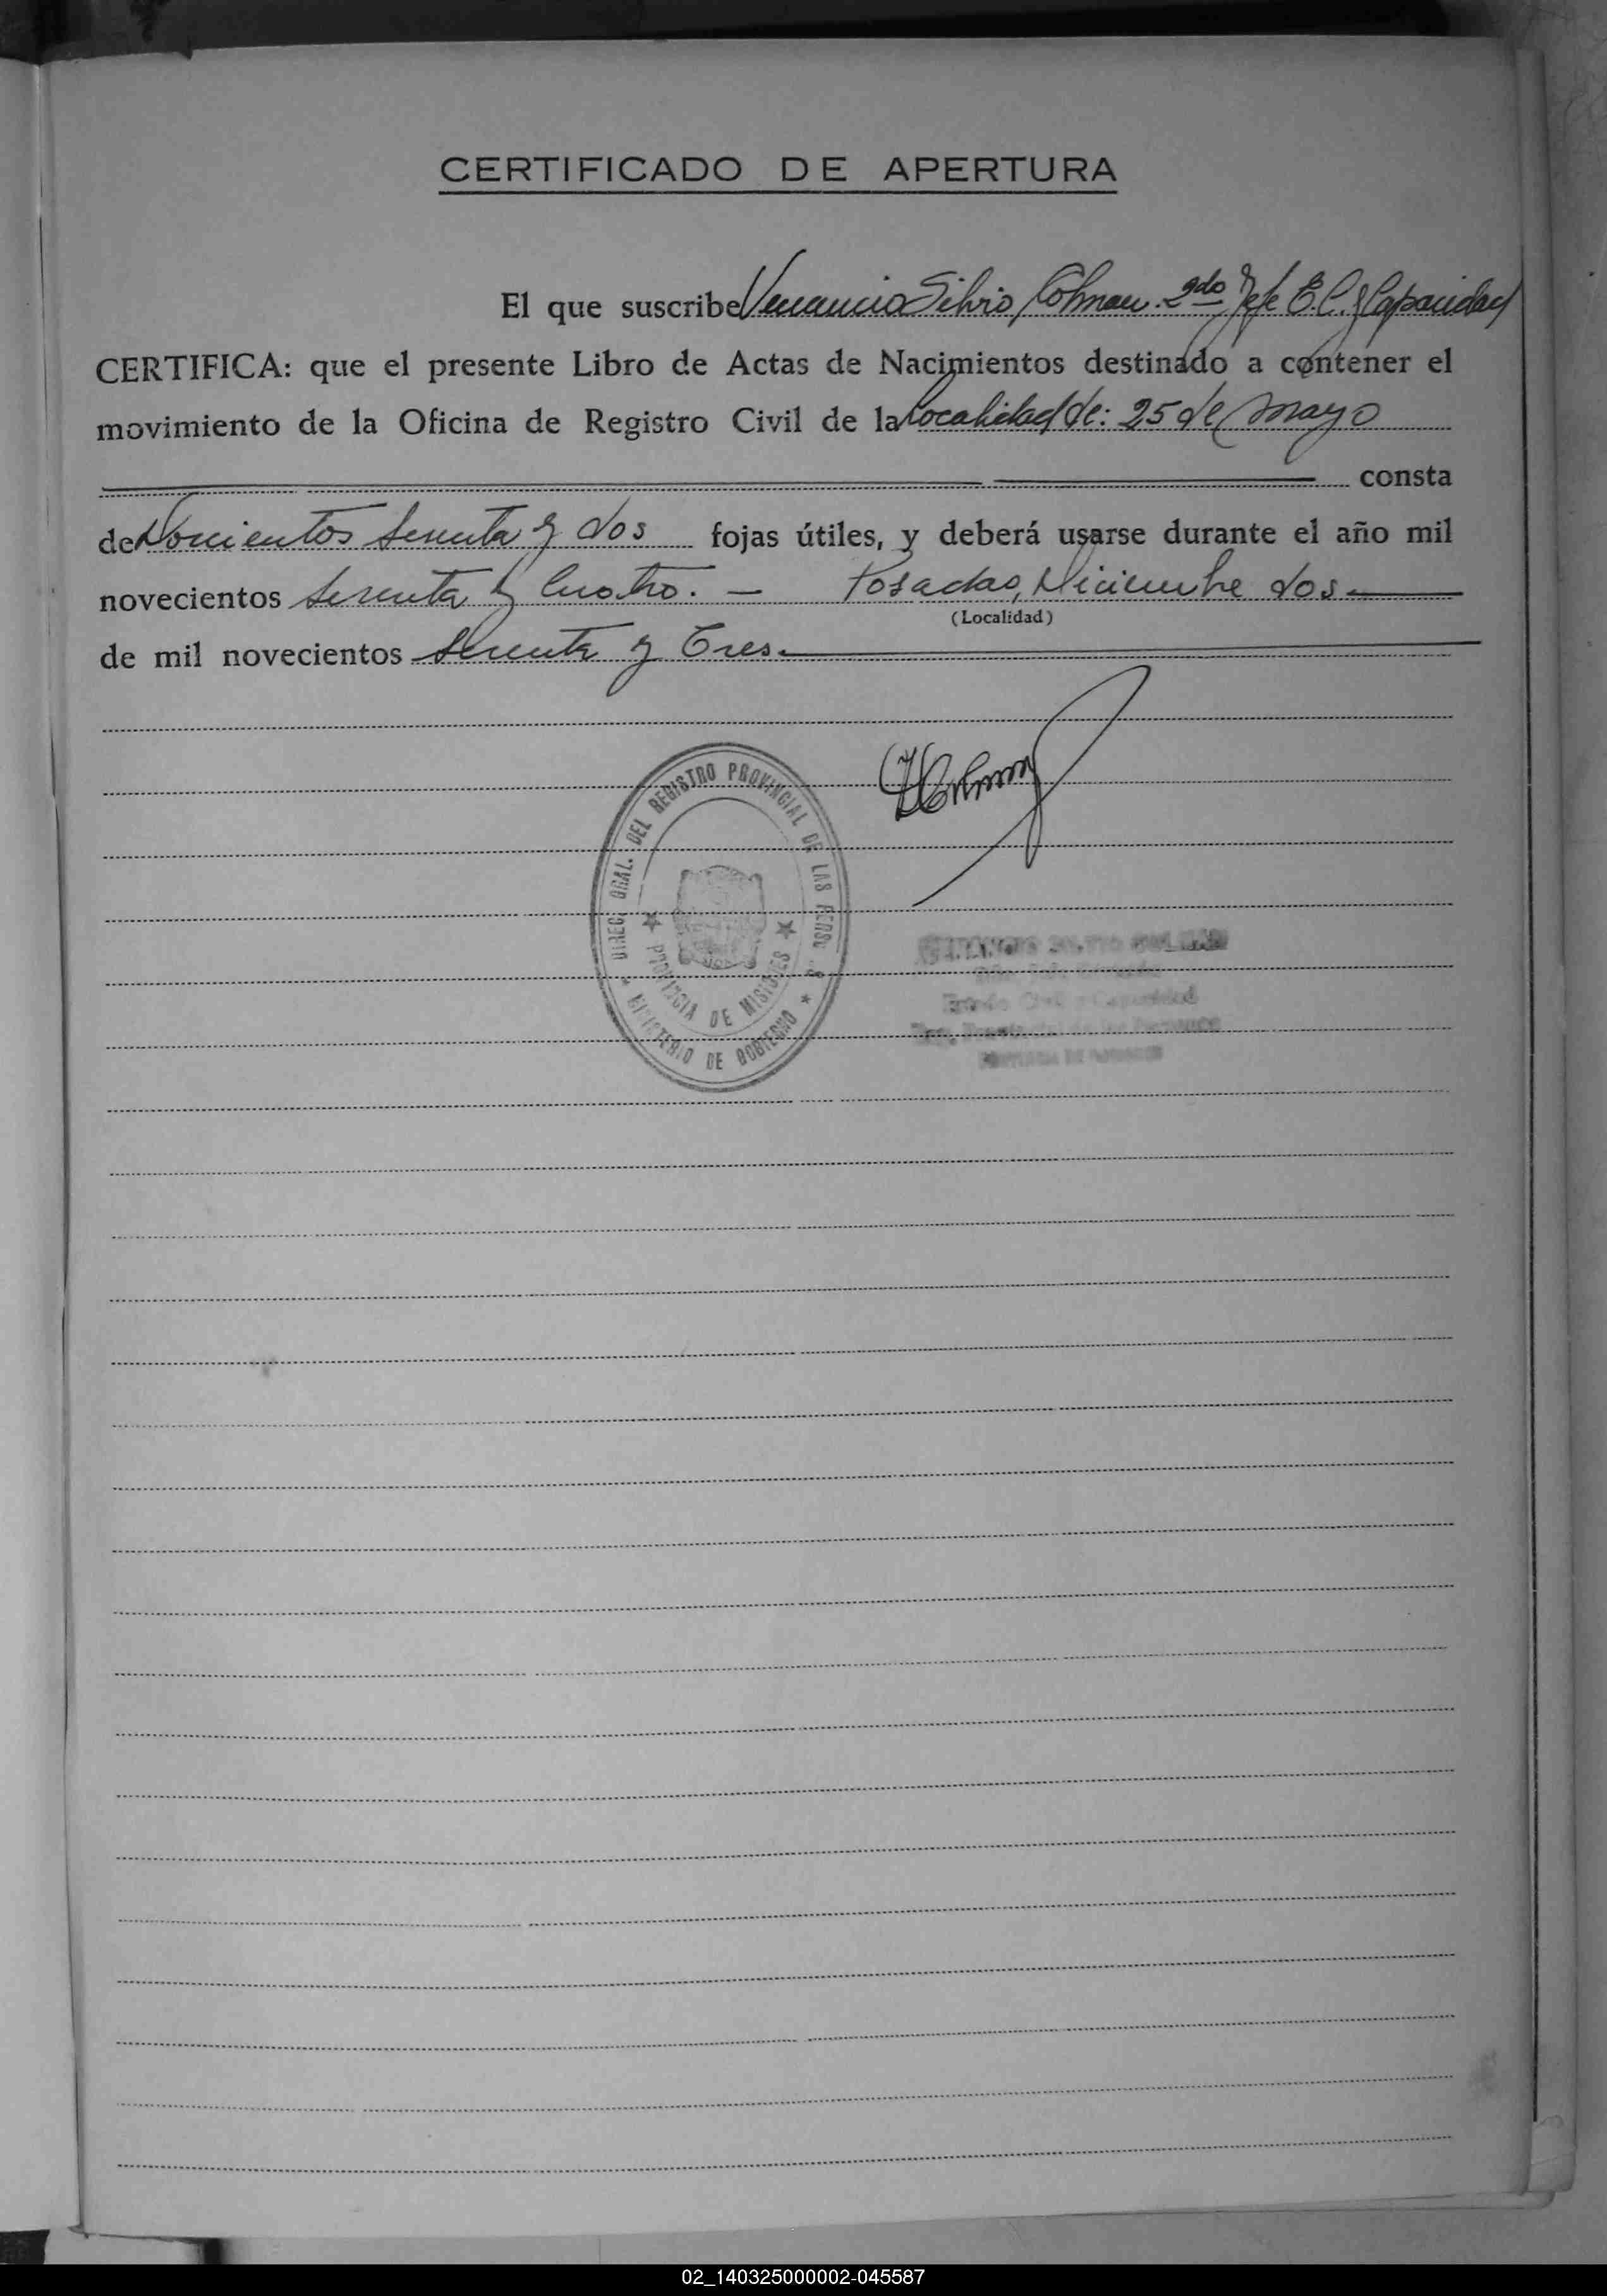 CERTIFICADO DE APERTURA
El que suscribe Venancio Silvio Colman. 2do Jefe E.C. y Capacidad
CERTIFICA: que el presente Libro de Actas de Nacimientos destinado a contener el
movimiento de la Oficina de Registro Civil de la localidad de: 25 de Mayo
consta
de Doscientos Setenta y dos fojas útiles, y deberá usarse durante el año mil
novecientos Setenta y Cuatro. — Posadas, Diciembre dos
(Localidad)
de mil novecientos Setenta y Tres.
DIREC. GRAL. DEL REGISTRO PROVINCIAL DE LAS PERSONAS
PROVINCIA DE MISIONES
MINISTERIO DE GOBIERNO
Estado Civil y Capacidad
02_140325000002-045587